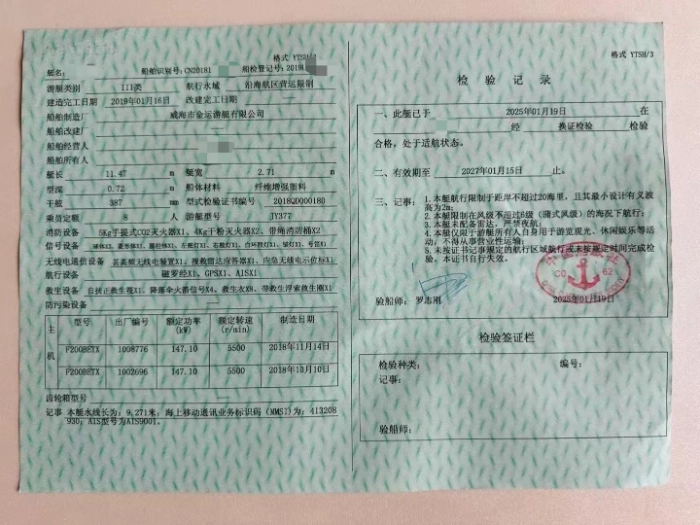 格式 YTSH/3
艇名:
船舶识别号:CN20181
船检登记号:2019L
游艇类别 III类 航行水域 沿海航区营运限制
建造完工日期 2019年01月16日 改建完工日期
船舶制造厂 威海市金运游艇有限公司
船舶改建厂
船舶经营人
船舶所有人
艇长 11.47 m 艇宽 2.71 m
型深 0.72 m 船体材料 纤维增强塑料
干舷 387 mm 型式检验证书编号 2018Z0000180
乘员定额 8 人 游艇型号 JY377
消防设备 5Kg手提式CO2灭火器X1、4Kg干粉灭火器X2、带绳消防桶X2
信号设备
无线电通信设备 甚高频无线电装置X1、搜救雷达应答器X1、应急无线电示位标X1
航行设备 磁罗经X1、GPSX1、AISX1
救生设备 自扶正救生筏X1、降落伞火箭信号X4、救生衣X8、带救生浮索救生圈X1
防污染设备
主机
型号 出厂编号 额定功率(kW) 额定转速(r/min) 制造日期
F200BETX 1008776 147.10 5500 2018年11月14日
F200BETX 1002696 147.10 5500 2018年10月10日
齿轮箱型号
记事 本艇水线长为:9.271米;海上移动通讯业务标识码(MMSI)为:413208
930;AIS型号为AIS9001。
格式 YTSH/3
检 验 记 录
一、此艇已于 2025年01月19日 在
经 换证检验 检验
合格,处于适航状态。
二、有效期至 2027年01月15日 止。
三、记事:
1.本艇航行限制于距岸不超过20海里,且其最小设计有义波
高为2m;
2.本艇限制在风级不超过6级(蒲式风级)的海况下航行;
3.本艇未配备雷达,严禁夜航;
4.本艇仅限于游艇所有人自身用于游览观光、休闲娱乐等活
动,不得从事营业性运输;
5.未按证书记事规定的航行区域航行或未按规定时间完成检
验,本证书自行失效。
CO 62
验船师: 罗志刚 2025年01月19日
检验签证栏
检验种类: 编号:
记事:
验船师: